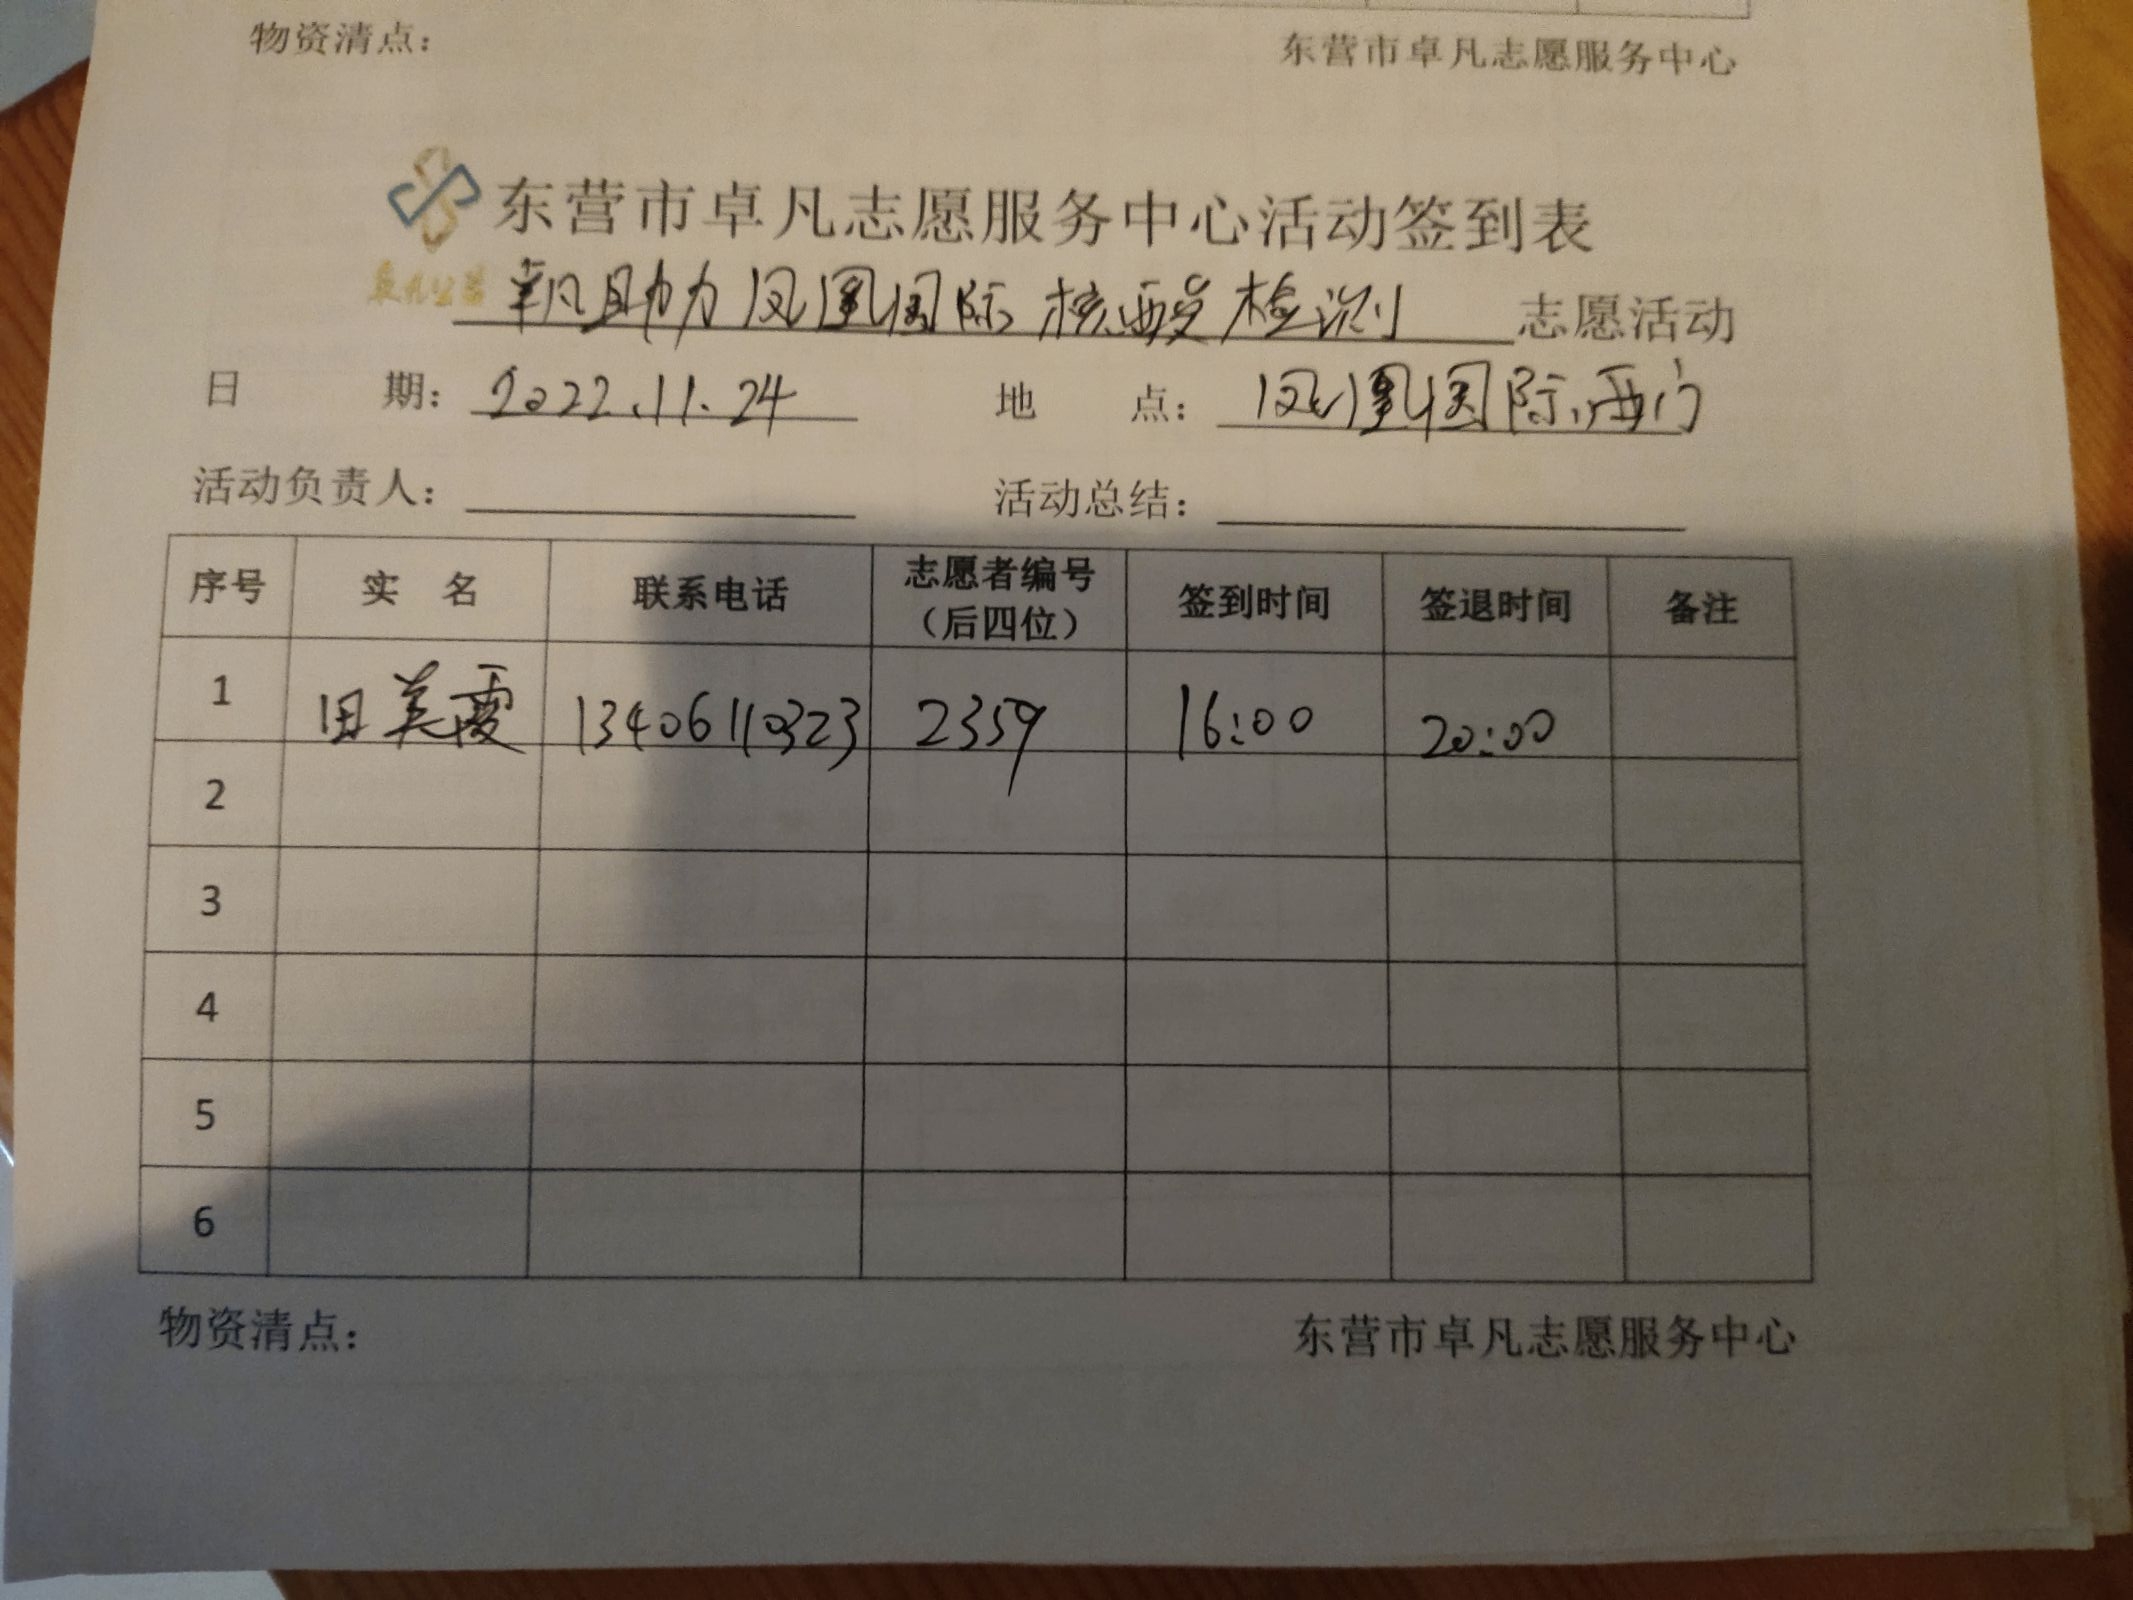 物资清点： 东营市卓凡志愿服务中心
东营市卓凡志愿服务中心活动签到表
卓凡公益 卓凡助力凤凰国际核酸检测 志愿活动
日 期： 2022.11.24 地 点： 凤凰国际西门
活动负责人： 活动总结：
序号 实 名 联系电话 志愿者编号（后四位） 签到时间 签退时间 备注
1 田美霞 13406110323 2359 16:00 20:00
2
3
4
5
6
物资清点： 东营市卓凡志愿服务中心